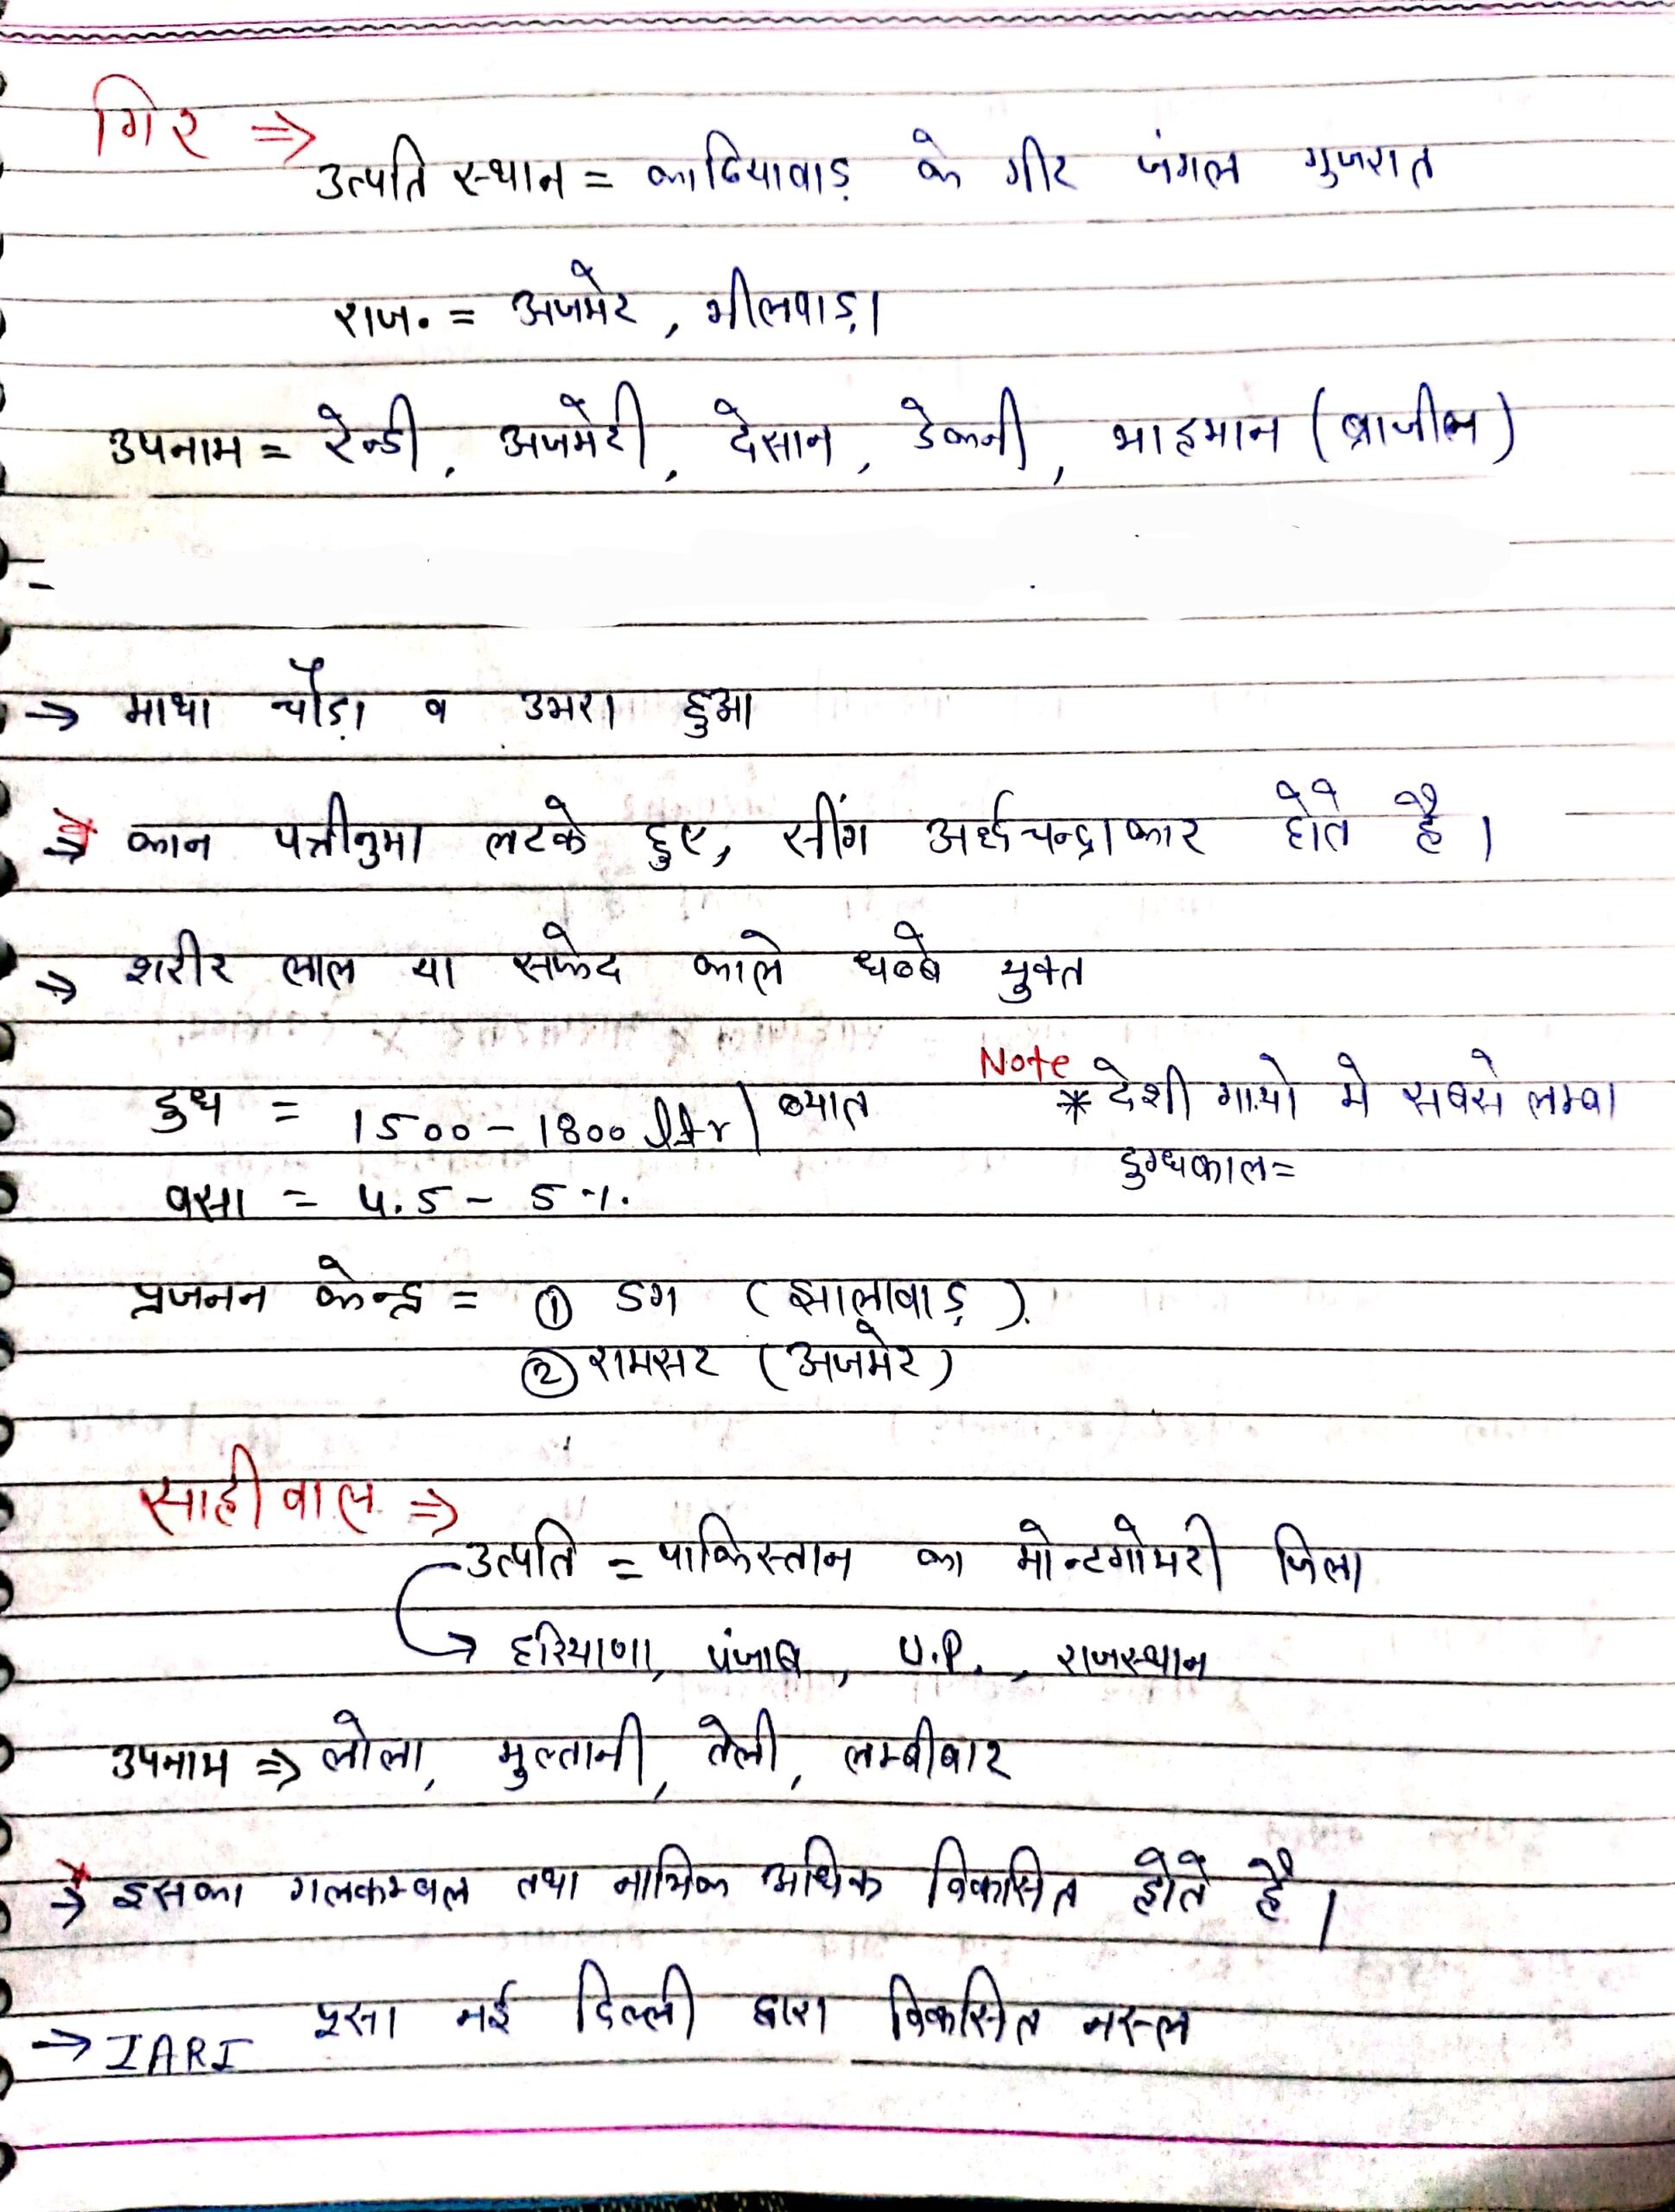 गिर ⇒
उत्पति स्थान = काठियावाड़ के गीर जंगल गुजरात
राज. = अजमेर, भीलवाड़ा
उपनाम = रेन्डी, अजमेरी, देसान, डेकनी, भाहमान (ब्राजील)
-
→ माथा चौड़ा व उभरा हुआ
→ कान पत्तीनुमा लटके हुए, सींग अर्धचन्द्राकार होते है।
→ शरीर लाल या सफेद काले धब्बे युक्त
दुध = 1500 - 1800 ltr/ब्यात
Note * देशी गायो मे सबसे लम्बा
दुग्धकाल =
वसा = 4.5 - 5 %.
प्रजनन केन्द्र = ① डग (झालावाड़).
② रामसर (अजमेर)
साहीवाल ⇒
उत्पति = पाकिस्तान का मोन्टगोमरी जिला
→ हरियाणा, पंजाब, U.P., राजस्थान
उपनाम ⇒ लोला, मुल्तानी, तेली, लम्बीबार
→ इसका गलकम्बल तथा नाभिक अधिक विकसित होते है।
→ IARI पूसा नई दिल्ली द्वारा विकसित नस्ल